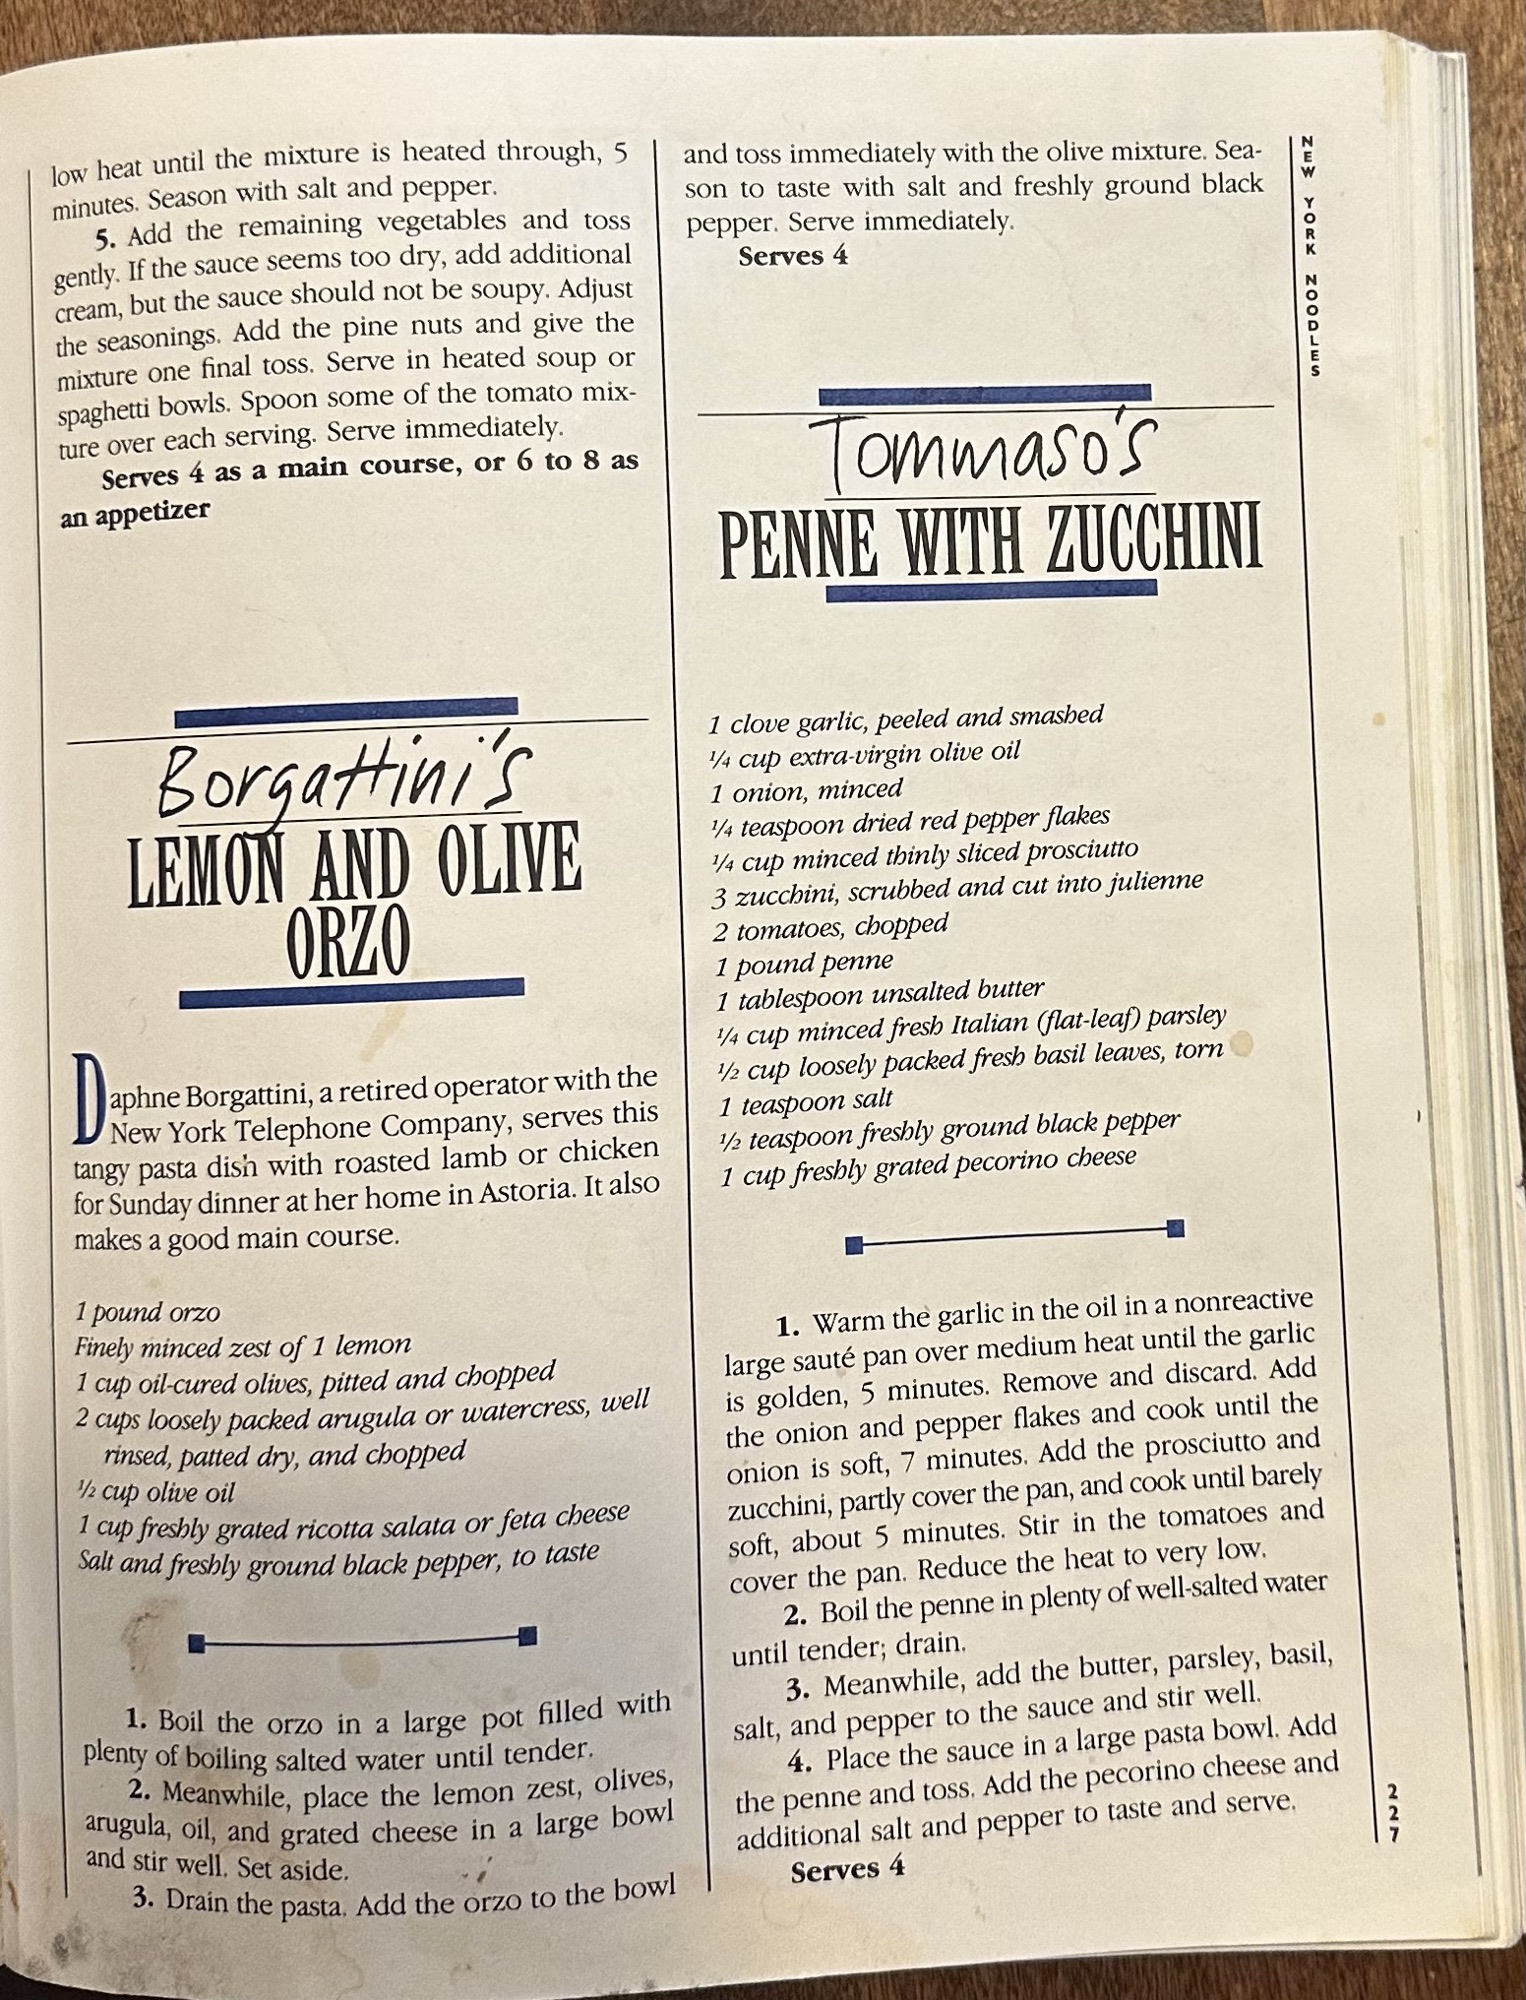 low heat until the mixture is heated through, 5
minutes. Season with salt and pepper.
5. Add the remaining vegetables and toss
gently. If the sauce seems too dry, add additional
cream, but the sauce should not be soupy. Adjust
the seasonings. Add the pine nuts and give the
mixture one final toss. Serve in heated soup or
spaghetti bowls. Spoon some of the tomato mix-
ture over each serving. Serve immediately.
Serves 4 as a main course, or 6 to 8 as
an appetizer
Borgattini's
LEMON AND OLIVE
ORZO
Daphne Borgattini, a retired operator with the
New York Telephone Company, serves this
tangy pasta dish with roasted lamb or chicken
for Sunday dinner at her home in Astoria. It also
makes a good main course.
1 pound orzo
Finely minced zest of 1 lemon
1 cup oil-cured olives, pitted and chopped
2 cups loosely packed arugula or watercress, well
rinsed, patted dry, and chopped
1/2 cup olive oil
1 cup freshly grated ricotta salata or feta cheese
Salt and freshly ground black pepper, to taste
1. Boil the orzo in a large pot filled with
plenty of boiling salted water until tender.
2. Meanwhile, place the lemon zest, olives,
arugula, oil, and grated cheese in a large bowl
and stir well. Set aside.
3. Drain the pasta. Add the orzo to the bowl
and toss immediately with the olive mixture. Sea-
son to taste with salt and freshly ground black
pepper. Serve immediately.
Serves 4
Tommaso's
PENNE WITH ZUCCHINI
1 clove garlic, peeled and smashed
1/4 cup extra-virgin olive oil
1 onion, minced
1/4 teaspoon dried red pepper flakes
1/4 cup minced thinly sliced prosciutto
3 zucchini, scrubbed and cut into julienne
2 tomatoes, chopped
1 pound penne
1 tablespoon unsalted butter
1/4 cup minced fresh Italian (flat-leaf) parsley
1/2 cup loosely packed fresh basil leaves, torn
1 teaspoon salt
1/2 teaspoon freshly ground black pepper
1 cup freshly grated pecorino cheese
1. Warm the garlic in the oil in a nonreactive
large sauté pan over medium heat until the garlic
is golden, 5 minutes. Remove and discard. Add
the onion and pepper flakes and cook until the
onion is soft, 7 minutes. Add the prosciutto and
zucchini, partly cover the pan, and cook until barely
soft, about 5 minutes. Stir in the tomatoes and
cover the pan. Reduce the heat to very low.
2. Boil the penne in plenty of well-salted water
until tender; drain.
3. Meanwhile, add the butter, parsley, basil,
salt, and pepper to the sauce and stir well.
4. Place the sauce in a large pasta bowl. Add
the penne and toss. Add the pecorino cheese and
additional salt and pepper to taste and serve.
Serves 4
NEW YORK NOODLES
227